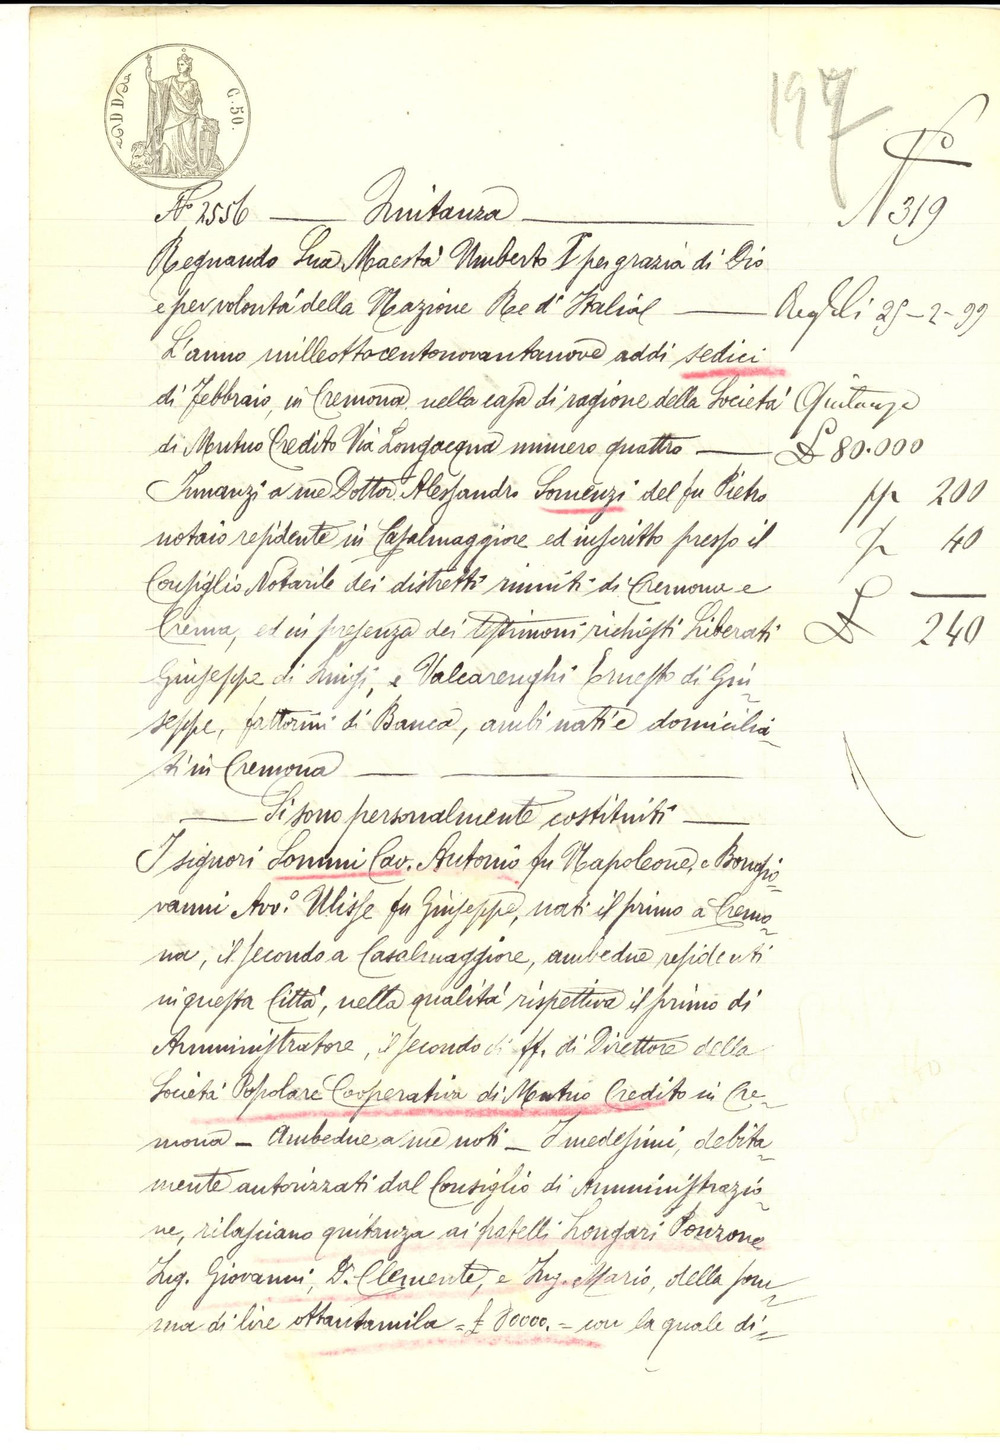 C. 50.
197
N 319
N° 2556 — Quitanza —
Regnando Sua Maestà Umberto I per grazia di Dio
e per volontà della Nazione Re d'Italia —
25-2-99
L'anno milleottocentonovantanove addì sedici
di Febbraio, in Cremona nella casa di ragione della Società
Quitanza
di Mutuo Credito Via Longacqua numero quattro —
£ 80.000
Innanzi a me Dottor Alessandro Somenzi del fu Pietro
200
notaio residente in Casalmaggiore ed inscritto presso il
40
Consiglio Notarile dei distretti riuniti di Cremona e
Crema, ed in presenza dei testimoni richiesti Liberati
£ 240
Giuseppe di Luigi, e Valcarenghi Ernesto di Giu-
seppe, fattorini di Banca, ambi nati e domicilia-
ti in Cremona —
— Si sono personalmente costituiti —
I signori Sommi Cav. Antonio fu Napoleone, e Bongio-
vanni Avv.° Ulisse fu Giuseppe, nati il primo a Cremo-
na, il secondo a Casalmaggiore, ambedue residenti
in questa Città, nella qualità rispettiva il primo di
Amministratore, il secondo di ff. di Direttore della
Società Popolare Cooperativa di Mutuo Credito in Cre-
mona — Ambedue a me noti — I medesimi, debita-
mente autorizzati dal Consiglio di Amministrazio-
ne, rilasciano quitanza ai fratelli Longari Ponzone
Ing. Giovanni, D.r Clemente, e Ing. Mario, della som-
ma di lire ottantamila = £ 80000. = con la quale di=